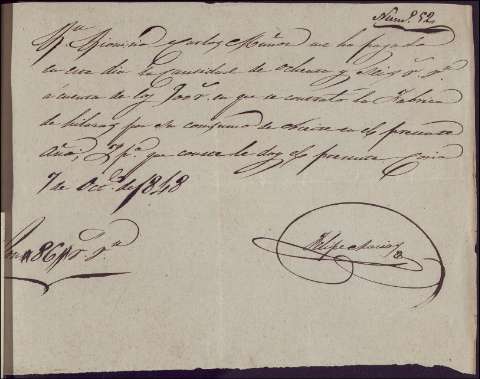 Num.º 52
Dn. Dionisio Carlos Muñoz me ha pagado
en este dia la cantidad de ochenta y Seis rs. vn.
á cuenta de los en que se contrató la Fabrica
de hilaza por Su consumo de en el presente
año, y pa. que conste le doy el presente
7 de Octe. de 1848
Son 86 rs. vn.
Felipe